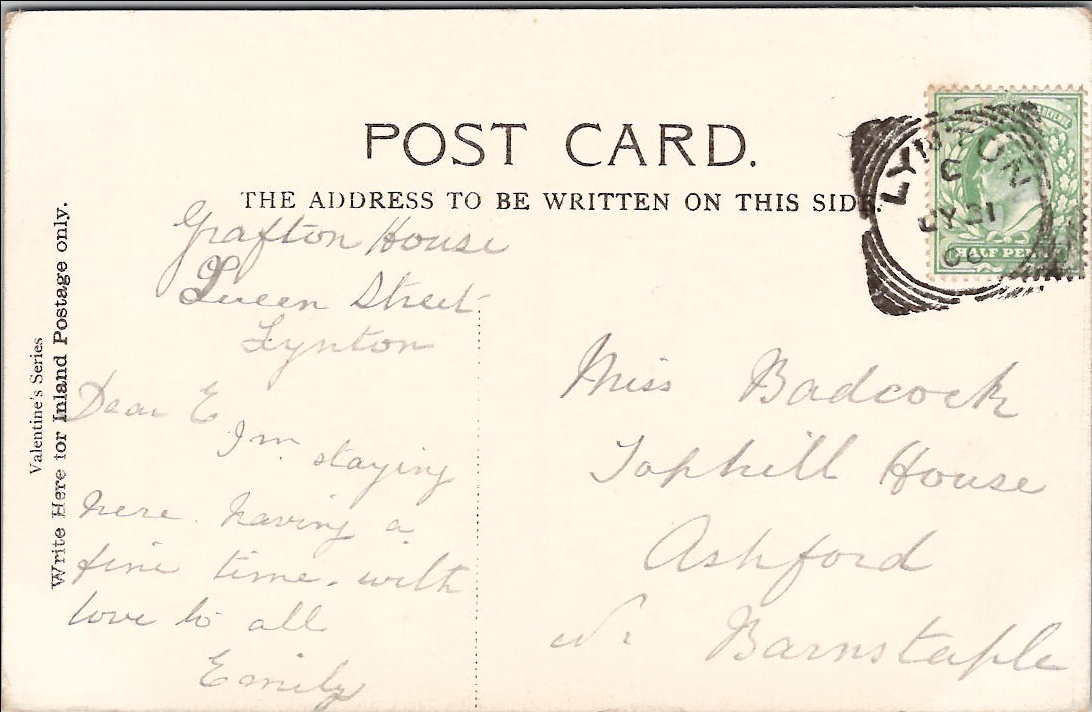 POST CARD.
THE ADDRESS TO BE WRITTEN ON THIS SIDE.
Valentine's Series
Write Here for Inland Postage only.
Grafton House
Queen Street
Lynton
Dear E
I'm staying
here. having a
fine time. with
love to all
Emily
LYNTON
C
21
HALF PE
Miss Badcock
Tophill House
Ashford
Nr Barnstaple